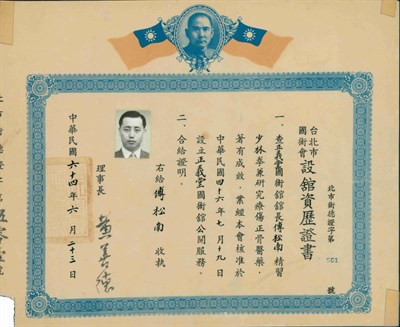 北市術德證字第501號
台北市國術會設舘資歷證書
一、查正義堂國術舘舘長傅松南精習
少林拳兼研究療傷正骨醫藥，
著有成效，業經本會核准於
中華民國四十六年七月十九日
設立正義堂國術舘公開服務。
二、合給證明。
右給傅松南收執
理事長
中華民國六十四年六月二十三日